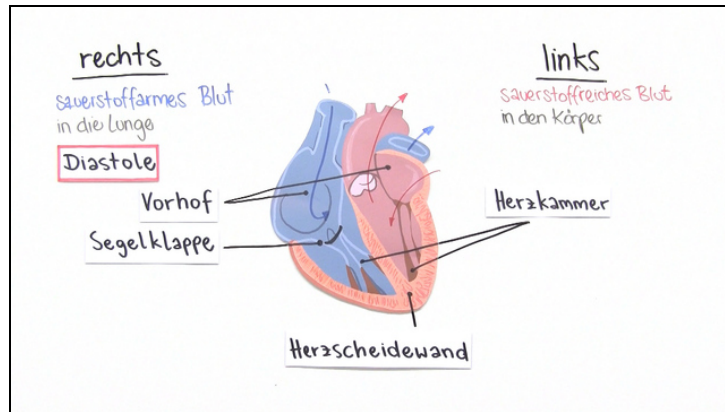 rechts
sauerstoffarmes Blut
in die Lunge
Diastole
Vorhof
Segelklappe
links
sauerstoffreiches Blut
in den Körper
Herzkammer
Herzscheidewand